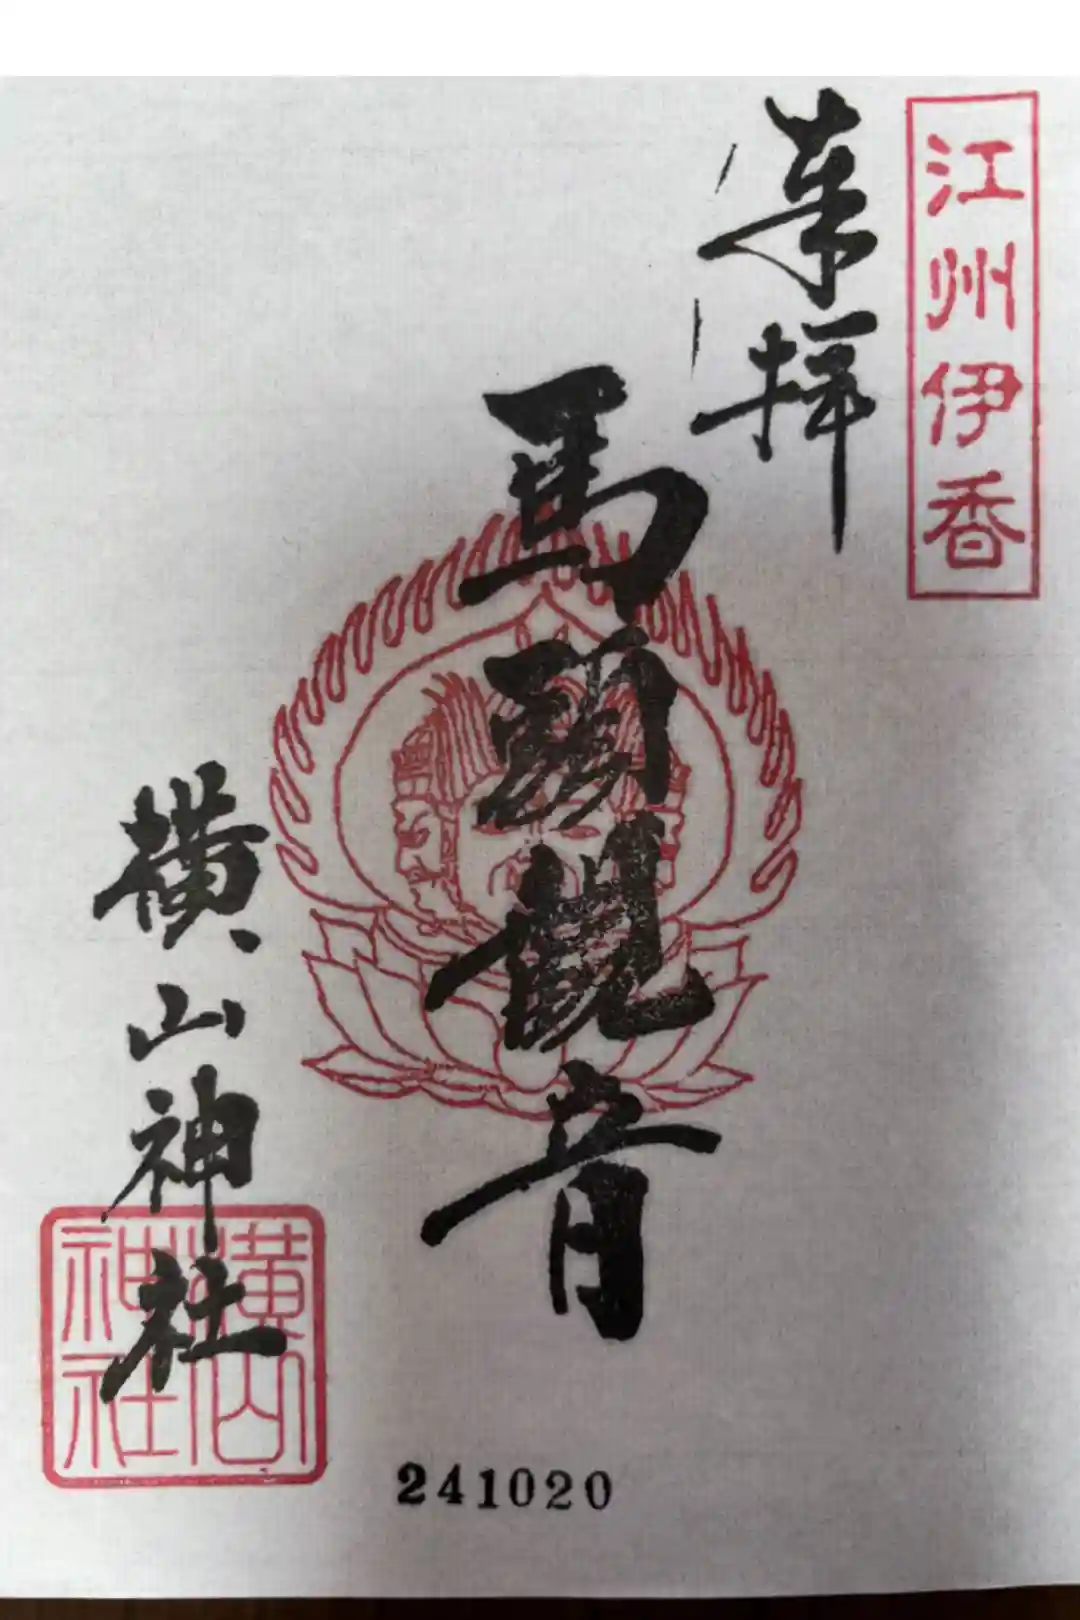 江州伊香
奉拝
馬頭観音
横山神社
横山
神社
241020